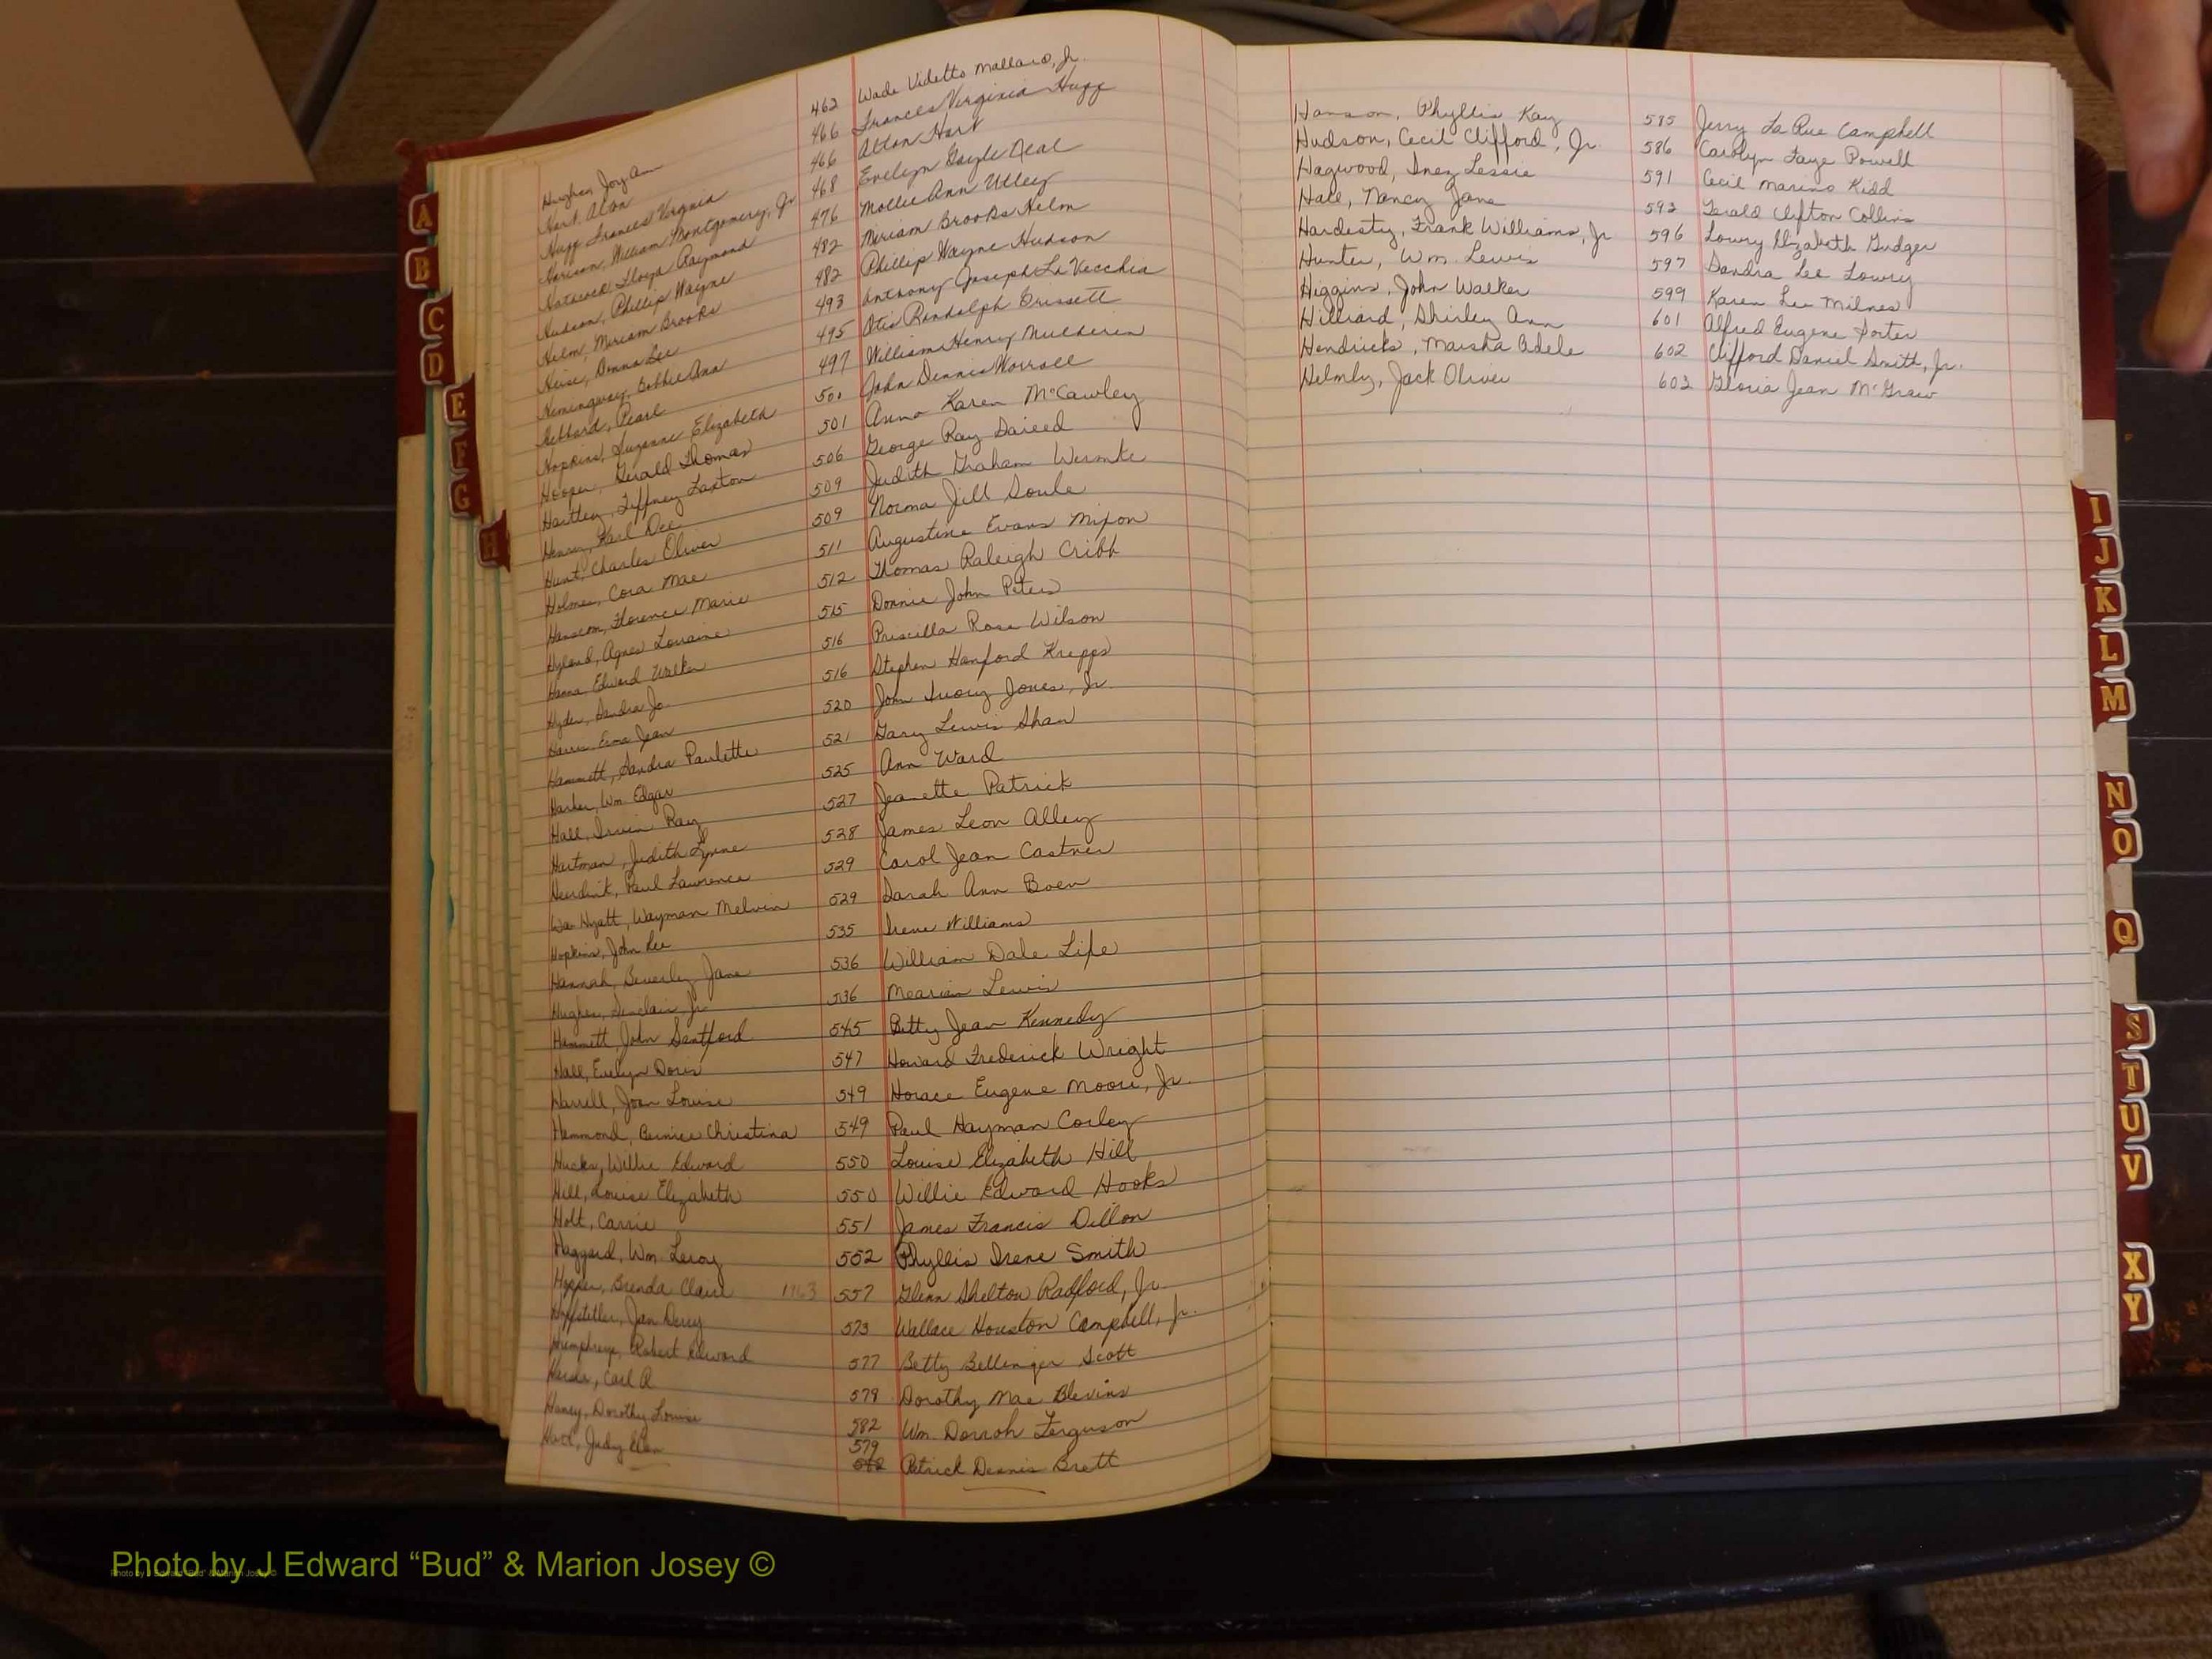 Hughes, Joy Ann 462 Wade Videtto Mallard, Jr.
Hart, Alton 466 Frances Virginia Hugg
Hugg Frances Virginia 466 Alton Hart
Harison, William Montgomery, Jr 468 Evelyn Gayle Neal
Hathcock Lloyd Raymond 476 Mollie Ann Utley
Hudson, Phillip Wayne 482 Miriam Brooks Helm
Helm, Miriam Brooks 482 Phillip Wayne Hudson
Heise, Donna Lee 493 Anthony Joseph La Vecchia
Hemingway, Bobbie Ann 495 Otis Randolph Brissett
Hebbard, Pearl 497 William Henry Mulherin
Hopkins, Suzanne Elizabeth 500 John Dennis Worrall
Hooper, Gerald Thomas 501 Anna Karen McCawley
Hartley, Tiffney Laxton 506 George Ray
Henry, Karl Dee 509 Judith Graham
Hunt, Charles Oliver 509 Norma Jill Soule
Holmes, Cora Mae 511 Augustine Evans Mixon
Hanscom, Florence Marie 512 Thomas Raleigh Cribb
Hyland, Agnes Lorraine 515 Donnie John Peters
Hanna, Edward Walker 516 Priscilla Rose Wilson
Hyder, Sandra Jo 516 Stephen Hanford Krepps
Harris Jean 520 John Ivory Jones, Jr.
Hammett, Sandra Paulette 521 Gary Lewis Shaw
Harker, Wm. Edgar 525 Ann Ward
Hall, Irvin Ray 527 Jeanette Patrick
Hartman, Judith Lynne 528 James Leon Alley
Paul Lawrence 529 Carol Jean Castner
Wa Hyatt, Wayman Melvin 529 Sarah Ann Boen
Hopkins, John Lee 535 Irene Williams
Hannah, Beverley Jane 536 William Dale Lipe
Hughes, Sinclair, Jr 536 Mearian Lewis
Hammett, John Santford 545 Betty Jean Kennedy
Hall, Evelyn Doris 547 Howard Frederick Wright
Harrell, Joan Louise 549 Horace Eugene Moore, Jr.
Hammond, Bernice Christina 549 Paul Hayman Corley
Hucks, Willie Edward 550 Louise Elizabeth Hill
Hill, Louise Elizabeth 550 Willie Edward Hooks
Holt, Carrie 551 James Francis Dillon
Haggard, Wm. Leroy 552 Phyllis Irene Smith
Hopper, Brenda Claire 1963 557 Glenn Shelton Radford, Jr.
Hoffstetler, Jan Derry 573 Wallace Houston Campbell, Jr.
Humphreys, Robert Edward 577 Betty Bellinger Scott
Carl A 578 Dorothy Mae Blevins
Haney, Dorothy Louise 582 Wm. Dorroh Ferguson
Judy Ellen 579 Patrick Dennis Brett
Hanson, Phyllis Kay 585 Jerry La Rue Campbell
Hudson, Cecil Clifford, Jr. 586 Carolyn Faye Powell
Hagwood, Inez Lessie 591 Cecil Marino Kidd
Hall, Nancy Jane 593 Gerald Clifton Collins
Hardesty, Frank Williams, Jr 596 Lowry Elizabeth Gudger
Hunter, Wm. Lewis 597 Sandra Lee Lowry
Higgins, John Walker 599 Karen Lee Milnes
Hilliard, Shirley Ann 601 Alfred Eugene Porter
Hendricks, Marsha Adele 602 Clifford Daniel Smith, Jr.
Helmly, Jack Oliver 603 Gloria Jean McGraw
A
B
C
D
E
F
G
H
I
J
K
L
M
N
O
Q
S
T
U
V
X
Y
Photo by J Edward “Bud” & Marion Josey ©
Photo by J Edward "Bud" & Marion Josey ©